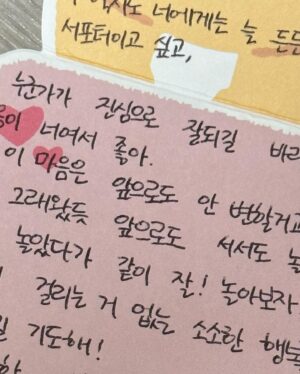 너에게는 늘 든든
서포터이고 싶고,
누군가가 진심으로 잘되길 바라
너여서 좋아.
이 마음은 앞으로도 안 변할거고
그래왔듯 앞으로도 서서도
놀았다가 같이 잘! 놀아보자
걸리는 거 없는 소소한 행복
기도해!